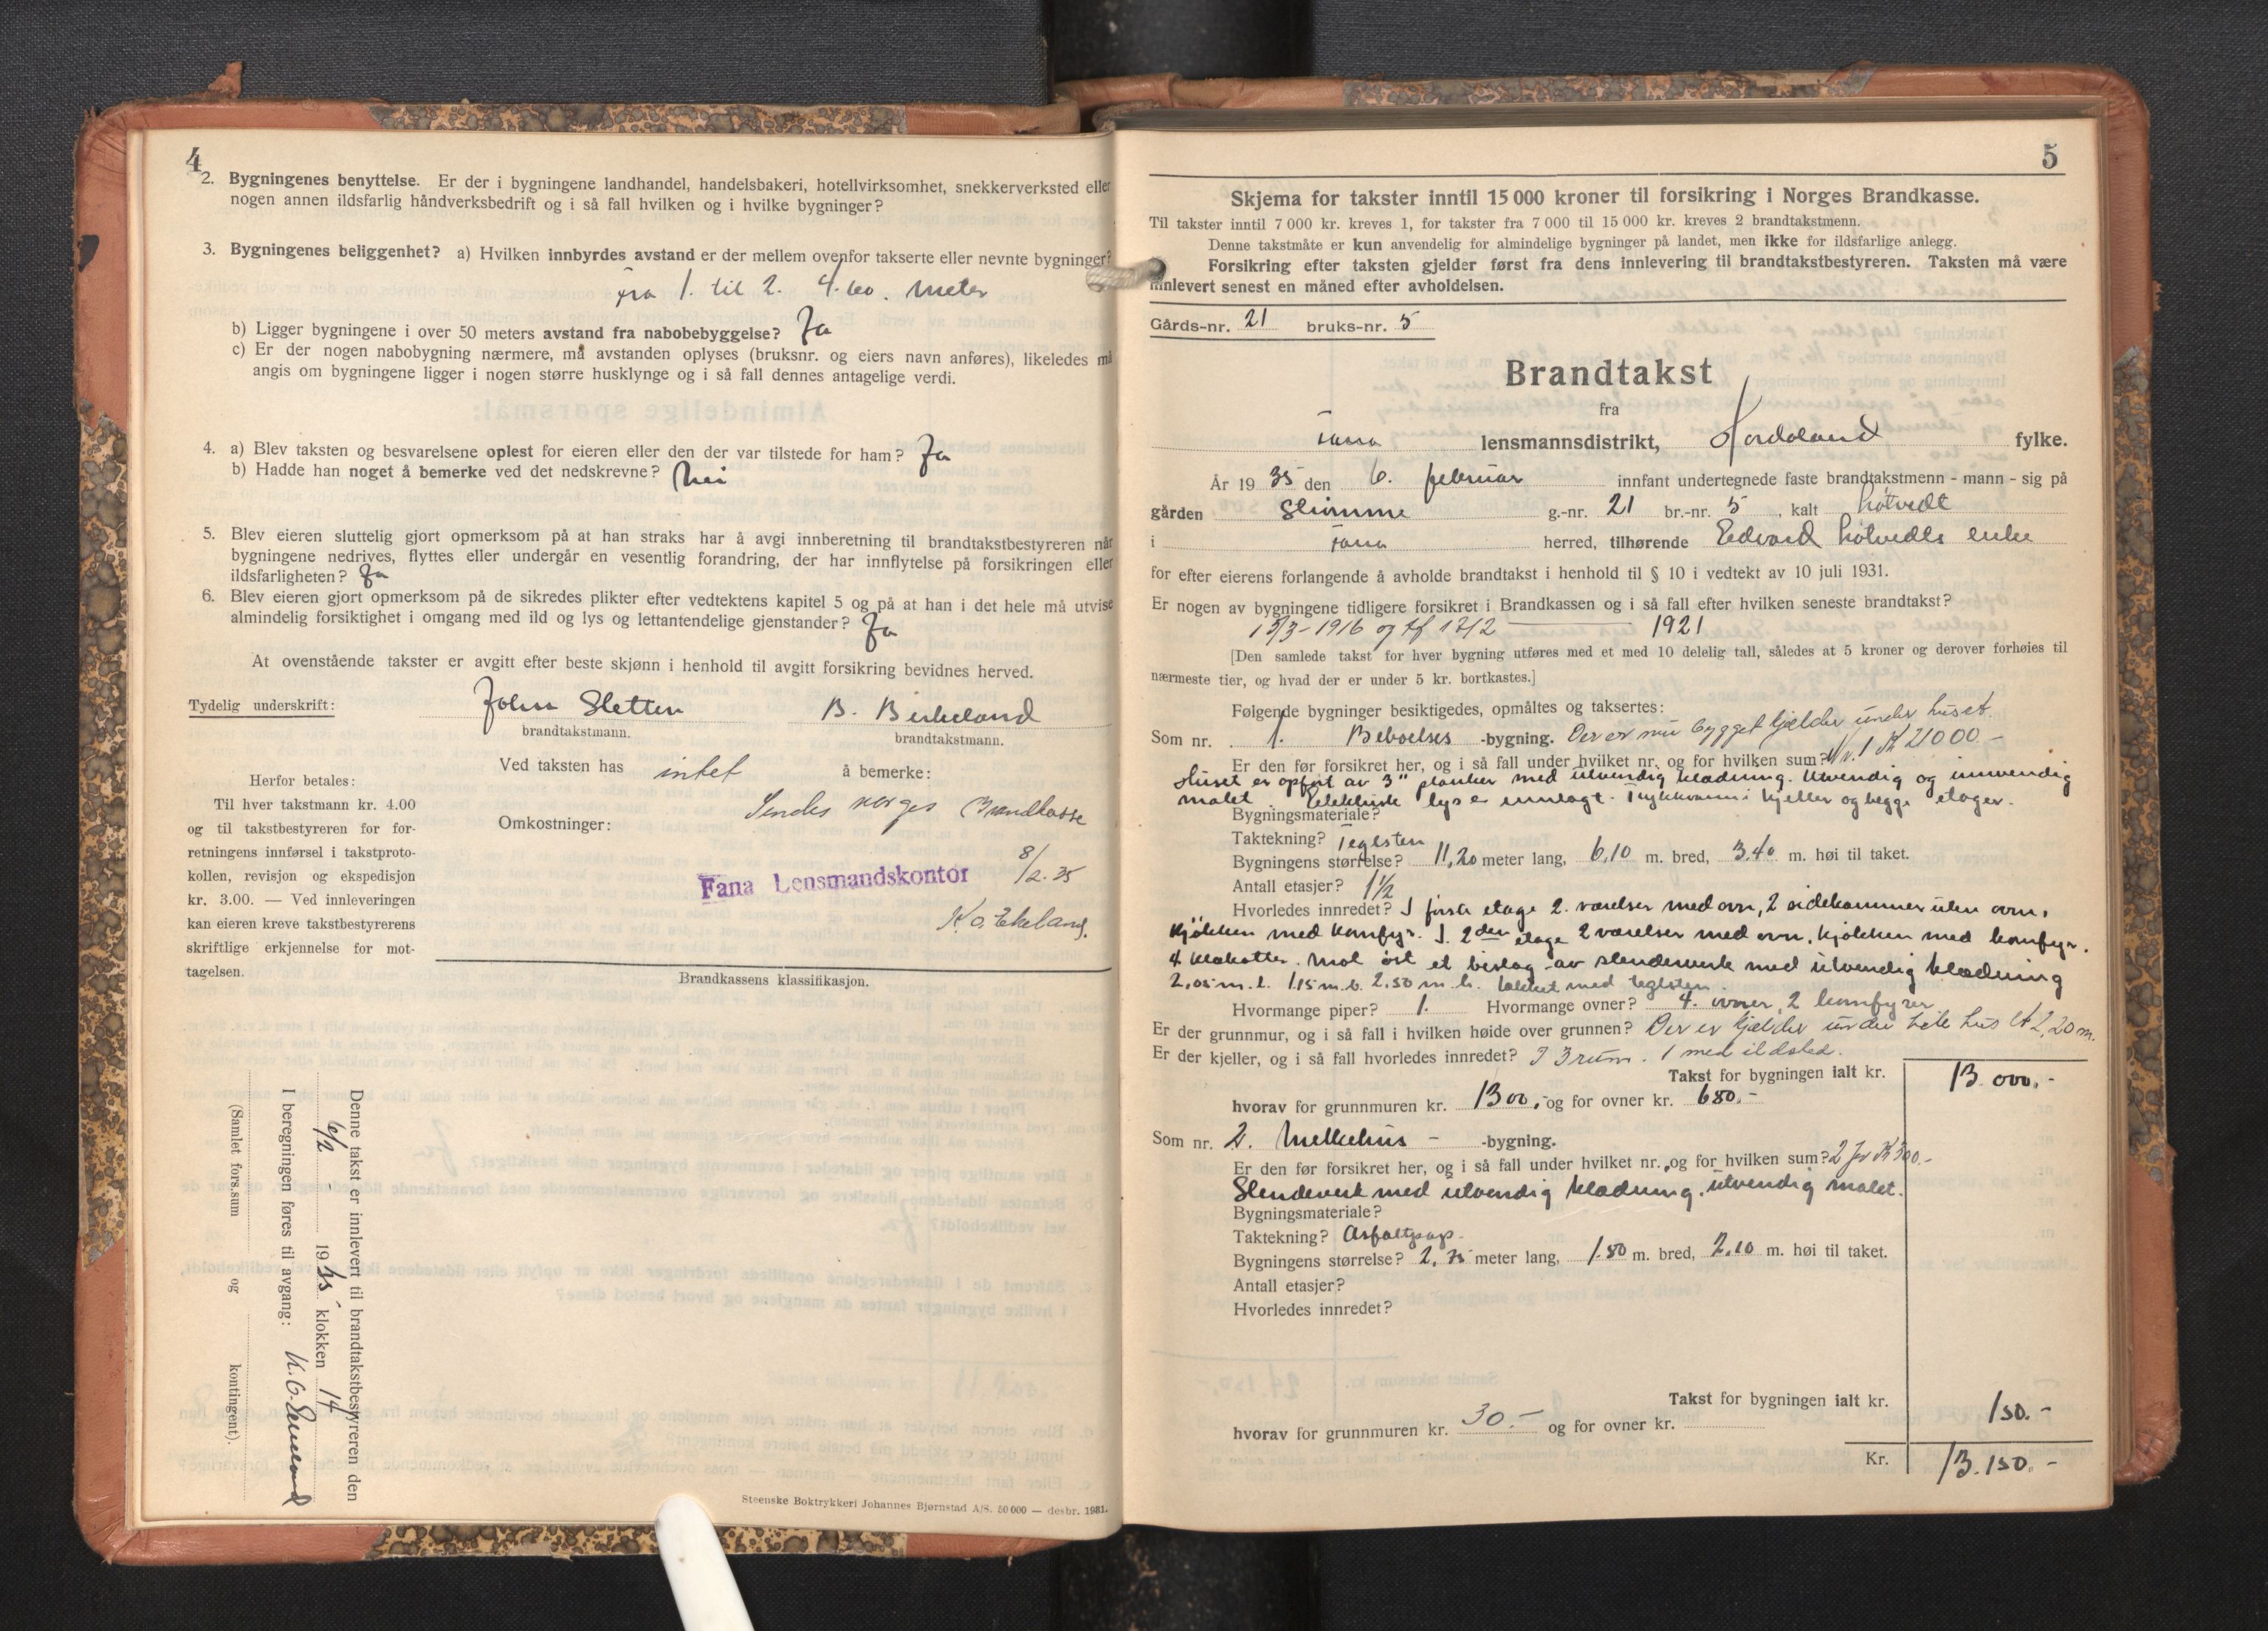 4
2. Bygningenes benyttelse. Er der i bygningene landhandel, handelsbakeri, hotellvirksomhet, snekkerverksted eller
nogen annen ildsfarlig håndverksbedrift og i så fall hvilken og i hvilke bygninger?
3. Bygningenes beliggenhet? a) Hvilken innbyrdes avstand er der mellem ovenfor takserte eller nevnte bygninger?
fra 1. til 2. 4.60. meter
b) Ligger bygningene i over 50 meters avstand fra nabobebyggelse? Ja
c) Er der nogen nabobygning nærmere, må avstanden oplyses (bruksnr. og eiers navn anføres), likeledes må
angis om bygningene ligger i nogen større husklynge og i så fall dennes antagelige verdi.
4. a) Blev taksten og besvarelsene oplest for eieren eller den der var tilstede for ham? Ja
b) Hadde han noget å bemerke ved det nedskrevne? Nei
5. Blev eieren sluttelig gjort opmerksom på at han straks har å avgi innberetning til brandtakstbestyreren når
bygningene nedrives, flyttes eller undergår en vesentlig forandring, der har innflytelse på forsikringen eller
ildsfarligheten? Ja
6. Blev eieren gjort opmerksom på de sikredes plikter efter vedtektens kapitel 5 og på at han i det hele må utvise
almindelig forsiktighet i omgang med ild og lys og lettantendelige gjenstander? Ja
At ovenstående takster er avgitt efter beste skjønn i henhold til avgitt forsikring bevidnes herved.
Tydelig underskrift: John Sletten B. Birkeland
brandtakstmann. brandtakstmann.
Ved taksten has intet å bemerke:
Herfor betales:
Til hver takstmann kr. 4.00
og til takstbestyreren for for-
retningens innførsel i takstproto-
kollen, revisjon og ekspedisjon
kr. 3.00. — Ved innleveringen
kan eieren kreve takstbestyrerens
skriftlige erkjennelse for mot-
tagelsen.
Sendes Norges Brandkasse
Omkostninger:
8/2.35
Fana Lensmandskontor
K. O. Ekeland.
Brandkassens klassifikasjon.
Denne takst er innlevert til brandtakstbestyreren den
6/2 - 1935 klokken 14
I beregningen føres til avgang: K. O. Ekeland
(Samlet fors.sum og kontingent).
Steenske Boktrykkeri Johannes Bjørnstad A/S. 50 000 — desbr. 1931.
5
Skjema for takster inntil 15 000 kroner til forsikring i Norges Brandkasse.
Til takster inntil 7 000 kr. kreves 1, for takster fra 7 000 til 15 000 kr. kreves 2 brandtakstmenn.
Denne takstmåte er kun anvendelig for almindelige bygninger på landet, men ikke for ildsfarlige anlegg.
Forsikring efter taksten gjelder først fra dens innlevering til brandtakstbestyreren. Taksten må være
innlevert senest en måned efter avholdelsen.
Gårds-nr. 21 bruks-nr. 5
Brandtakst
fra
Fana lensmannsdistrikt, Hordaland fylke.
År 1935 den 6. februar innfant undertegnede faste brandtakstmenn - mann - sig på
gården Slimme g.-nr. 21 br.-nr. 5, kalt Løtvedt
i Fana herred, tilhørende Edvard Løtvedts enke
for efter eierens forlangende å avholde brandtakst i henhold til § 10 i vedtekt av 10 juli 1931.
Er nogen av bygningene tidligere forsikret i Brandkassen og i så fall efter hvilken seneste brandtakst?
15/3-1916 og tf 17/2 1921
[Den samlede takst for hver bygning utføres med et med 10 delelig tall, således at 5 kroner og derover forhøies til
nærmeste tier, og hvad der er under 5 kr. bortkastes.]
Følgende bygninger besiktigedes, opmåltes og taksertes:
Som nr. 1. Beboelses -bygning. Der er nu bygget kjælder under huset.
Er den før forsikret her, og i så fall under hvilket nr. og for hvilken sum? Nr. 1 Kr 21000.-
Huset er opført av 3" planker med utvendig klædning. Utvendig og innvendig
malet. Elektrisk lys er innlagt. Trykkvann i kjeller og begge etager.
Bygningsmateriale?
Taktekning? Teglsten
Bygningens størrelse? 11,20 meter lang, 6,10 m. bred, 3.40 m. høi til taket.
Antall etasjer? 1½
Hvorledes innredet? I første etage 2. værelser med ovn, 2 sidekammer uten ovn,
kjökken med komfyr. I. 2den etage 2 værelser med ovn, kjøkken med komfyr.
4 klakotter. Mot øst et bislag av stenderverk med utvendig klædning
2,05 m.l. 1,15 m.b. 2,50 m.h. tekket med teglsten.
Hvormange piper? 1. Hvormange ovner? 4. ovner, 2 komfyrer
Er der grunnmur, og i så fall i hvilken høide over grunnen? Der er kjælder under hele hus 2,20 m.
Er der kjeller, og i så fall hvorledes innredet? I 3 rum. 1 med ildsted.
Takst for bygningen ialt kr. 13.000.-
hvorav for grunnmuren kr. 1300,- og for ovner kr. 680.-
Som nr. 2. Melkehus - -bygning.
Er den før forsikret her, og i så fall under hvilket nr. og for hvilken sum? 2 for Kr 300.-
Stenderverk med utvendig klædning. utvendig malet.
Bygningsmateriale?
Taktekning? Asfaltpap.
Bygningens størrelse? 2,75 meter lang, 1.80 m. bred, 2.10 m. høi til taket.
Antall etasjer?
Hvorledes innredet?
Takst for bygningen ialt kr. 150.-
hvorav for grunnmuren kr. 30.- og for ovner kr.
Kr. 13.150.-